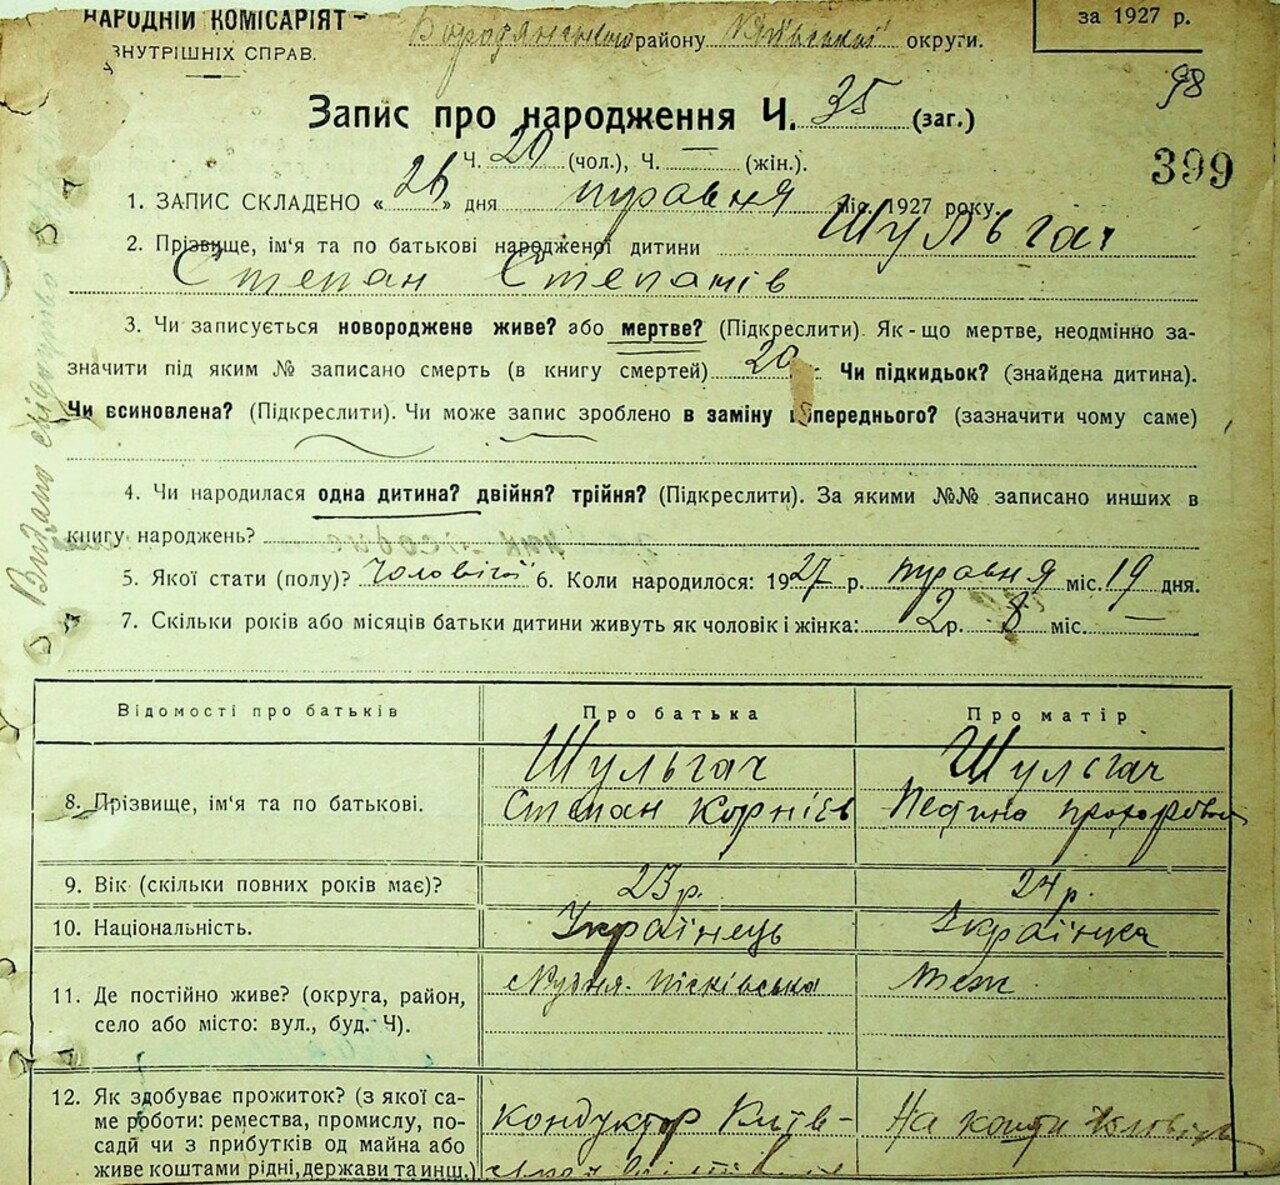 НАРОДНІЙ КОМІСАРІЯТ
ВНУТРІШНІХ СПРАВ.
Бородянського району Київської округи.
за 1927 р.
98
399
Запис про народження Ч. 35 (заг.)
Ч. 20 (чол.), Ч. — (жін.).
1. ЗАПИС СКЛАДЕНО «26» дня травня міс. 1927 року.
2. Прізвище, ім'я та по батькові народженої дитини Шульгач
Степан Степанів
3. Чи записується новороджене живе? або мертве? (Підкреслити). Як-що мертве, неодмінно за-
значити під яким № записано смерть (в книгу смертей) 20 Чи підкидьок? (знайдена дитина).
Чи всиновлена? (Підкреслити). Чи може запис зроблено в заміну попереднього? (зазначити чому саме)
4. Чи народилася одна дитина? двійня? трійня? (Підкреслити). За якими №№ записано инших в
книгу народжень?
5. Якої стати (полу)? Чоловічої 6. Коли народилося: 1927 р. травня міс. 19 дня.
7. Скільки років або місяців батьки дитини живуть як чоловік і жінка: 2 р. 8 міс. —
Видано свідоцтво
Відомості про батьків
Про батька
Про матір
8. Прізвище, ім'я та по батькові.
Шульгач
Степан Корніїв
Шульгач
Прохорівна
9. Вік (скільки повних років має)?
23 р.
24 р.
10. Національність.
Українець
Українка
11. Де постійно живе? (округа, район,
село або місто: вул., буд. Ч).
Пісківська
теж
12. Як здобуває прожиток? (з якої са-
ме роботи: ремества, промислу, по-
сади чи з прибутків од майна або
живе коштами рідні, держави та инш.)
Кондуктор Київ-
На кошти